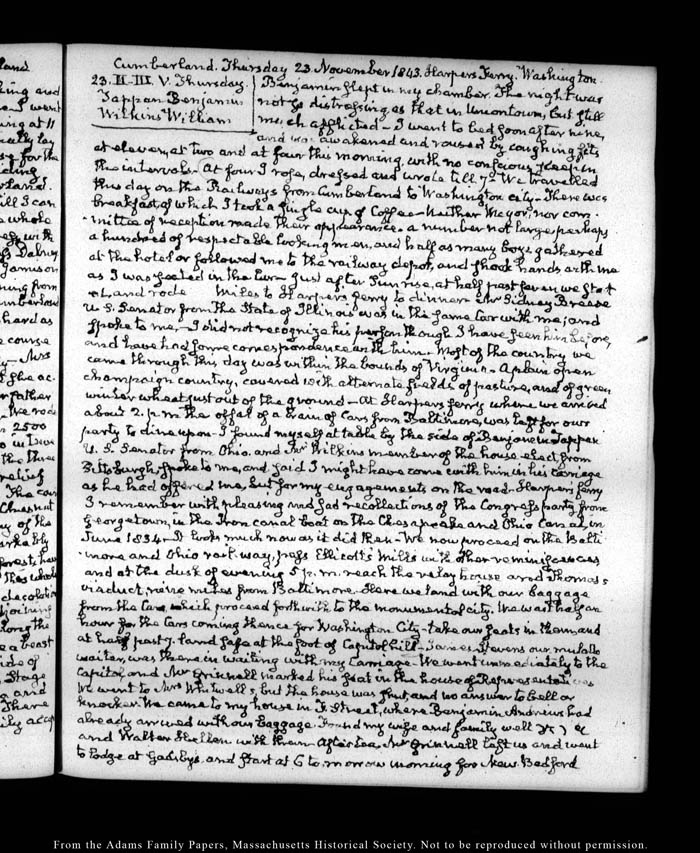 Cumberland. Thursday 23 November 1843. Harpers Ferry. Washington
23. II-III. V. Thursday.
Tappan Benjamin
Wilkins William
Benjamin slept in my chamber. The night was
not so distressing as that in Uniontown, but still
much afflicted - I went to bed soon after nine,
and was awakened and roused by coughing fits
at eleven, at two and at four this morning, with no conscious sleep in
the intervals. At four I rose, dressed and wrote till 7. We travelled
this day on the Railways from Cumberland to Washington city - There was
breakfast, of which I took a single cup of Coffee - Neither Mayor, nor com-
mittee of reception made their appearance. a number not large, perhaps
a hundred of respectable looking men, and half as many boys gathered
at the hotel or followed me to the railway depot, and shook hands with me
as I was seated in the Car - Just after Sunrise, at half past seven we
and rode miles to Harpers ferry to dinner - Mr Sidney Breese
U. S. Senator from the State of Illinois was in the same Car with me, and
spoke to me - I did not recognize his person though I have seen him before,
and have had some correspondence with him. Most of the country we
came through this day was within the bounds of Virginia - A plain open
champaign country, covered with alternate fields of pasture, and of green
winter wheat just out of the ground - At Harpers ferry where we arrived
about 2. p.m the offal of a train of Cars from Baltimore, was left for our
party to dine upon - I found myself at table by the side of Benjamin Tappan
U. S. Senator from Ohio. and Mr Wilkins member of the house elect from
Pittsburgh, spoke to me, and said I might have come with him in his carriage
as he had offered me, but for my engagements on the road - Harpers ferry
I remember with pleasing and sad recollections of the Congress party from
Georgetown, in the Iron canal boat on the Chesapeake and Ohio Canal, in
June 1834. It looks much now as it did then - We now proceed on the Balti-
more and Ohio rail-way, pass Ellicott's Mills with other reminiscences
and at the dusk of evening 5 p.m. reach the relay house and Thomas's
viaduct, nine miles from Baltimore. Here we land with our baggage
from the Cars, which proceed forthwith to the monumental city. We wait half an
hour for the Cars coming thence for Washington City - take our seats in them, and
at half past 7. land safe at the foot of Capitol hill - James Stevens our mulatto
waiter, was there in waiting with my Carriage - We went immediately to the
Capitol, and Mr Grinnell marked his seat in the house of Representatives
We went to Mrs Whitwell's, but the house was shut, and no answer to bell or
knocker. We came to my house in F. Street, where Benjamin Andrews had
already arrived with our baggage. Found my wife and family well
and Walter Hellen with them. After tea, Mr Grinnell left us and went
to lodge at Gadsby's. and start at 6 to morrow morning for New Bedford
From the Adams Family Papers, Massachusetts Historical Society. Not to be reproduced without permission.